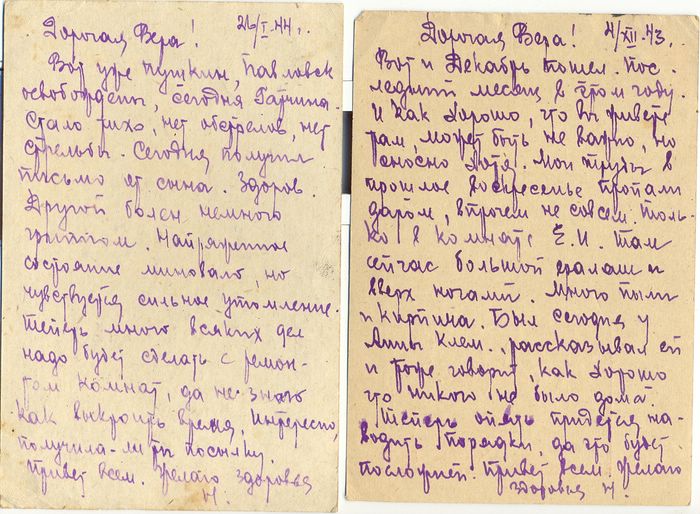 Дорогая Вера! 26/I.44.
Вот уже Пушкин, Павловск
освобождены, сегодня Гатчина.
Стало тихо, нет обстрелов, нет
стрельбы. Сегодня получил
письмо от сына. Здоров.
Другой болен немного
гриппом. Напряженное
состояние миновало, но
чувствуется сильное утомление.
Теперь много всяких дел
надо будет сделать с ремон-
том комнат, да не знаю
как выкроить время. Интересно,
получила-ли ты посылку.
Привет всем. Желаю здоровья
Н.
Дорогая Вера! 4/XII.43.
Вот и Декабрь пошел. Пос-
ледний месяц в этом году.
И как хорошо, что вы живете
там, может быть не важно, но
сносно хотя. Мои труды в
прошлое воскресенье пропали
даром, впрочем не совсем. Толь-
ко в комнате Е.И. Там
сейчас большой ералаш и
вверх ногами. Много пыли
и кирпича. Был сегодня у
Анны Клем., рассказывал ей
и тоже говорит, как хорошо
что никого не было дома.
Теперь опять придется на-
водить порядки, да что будет
послужит. Привет всем. Желаю
здоровья Н.